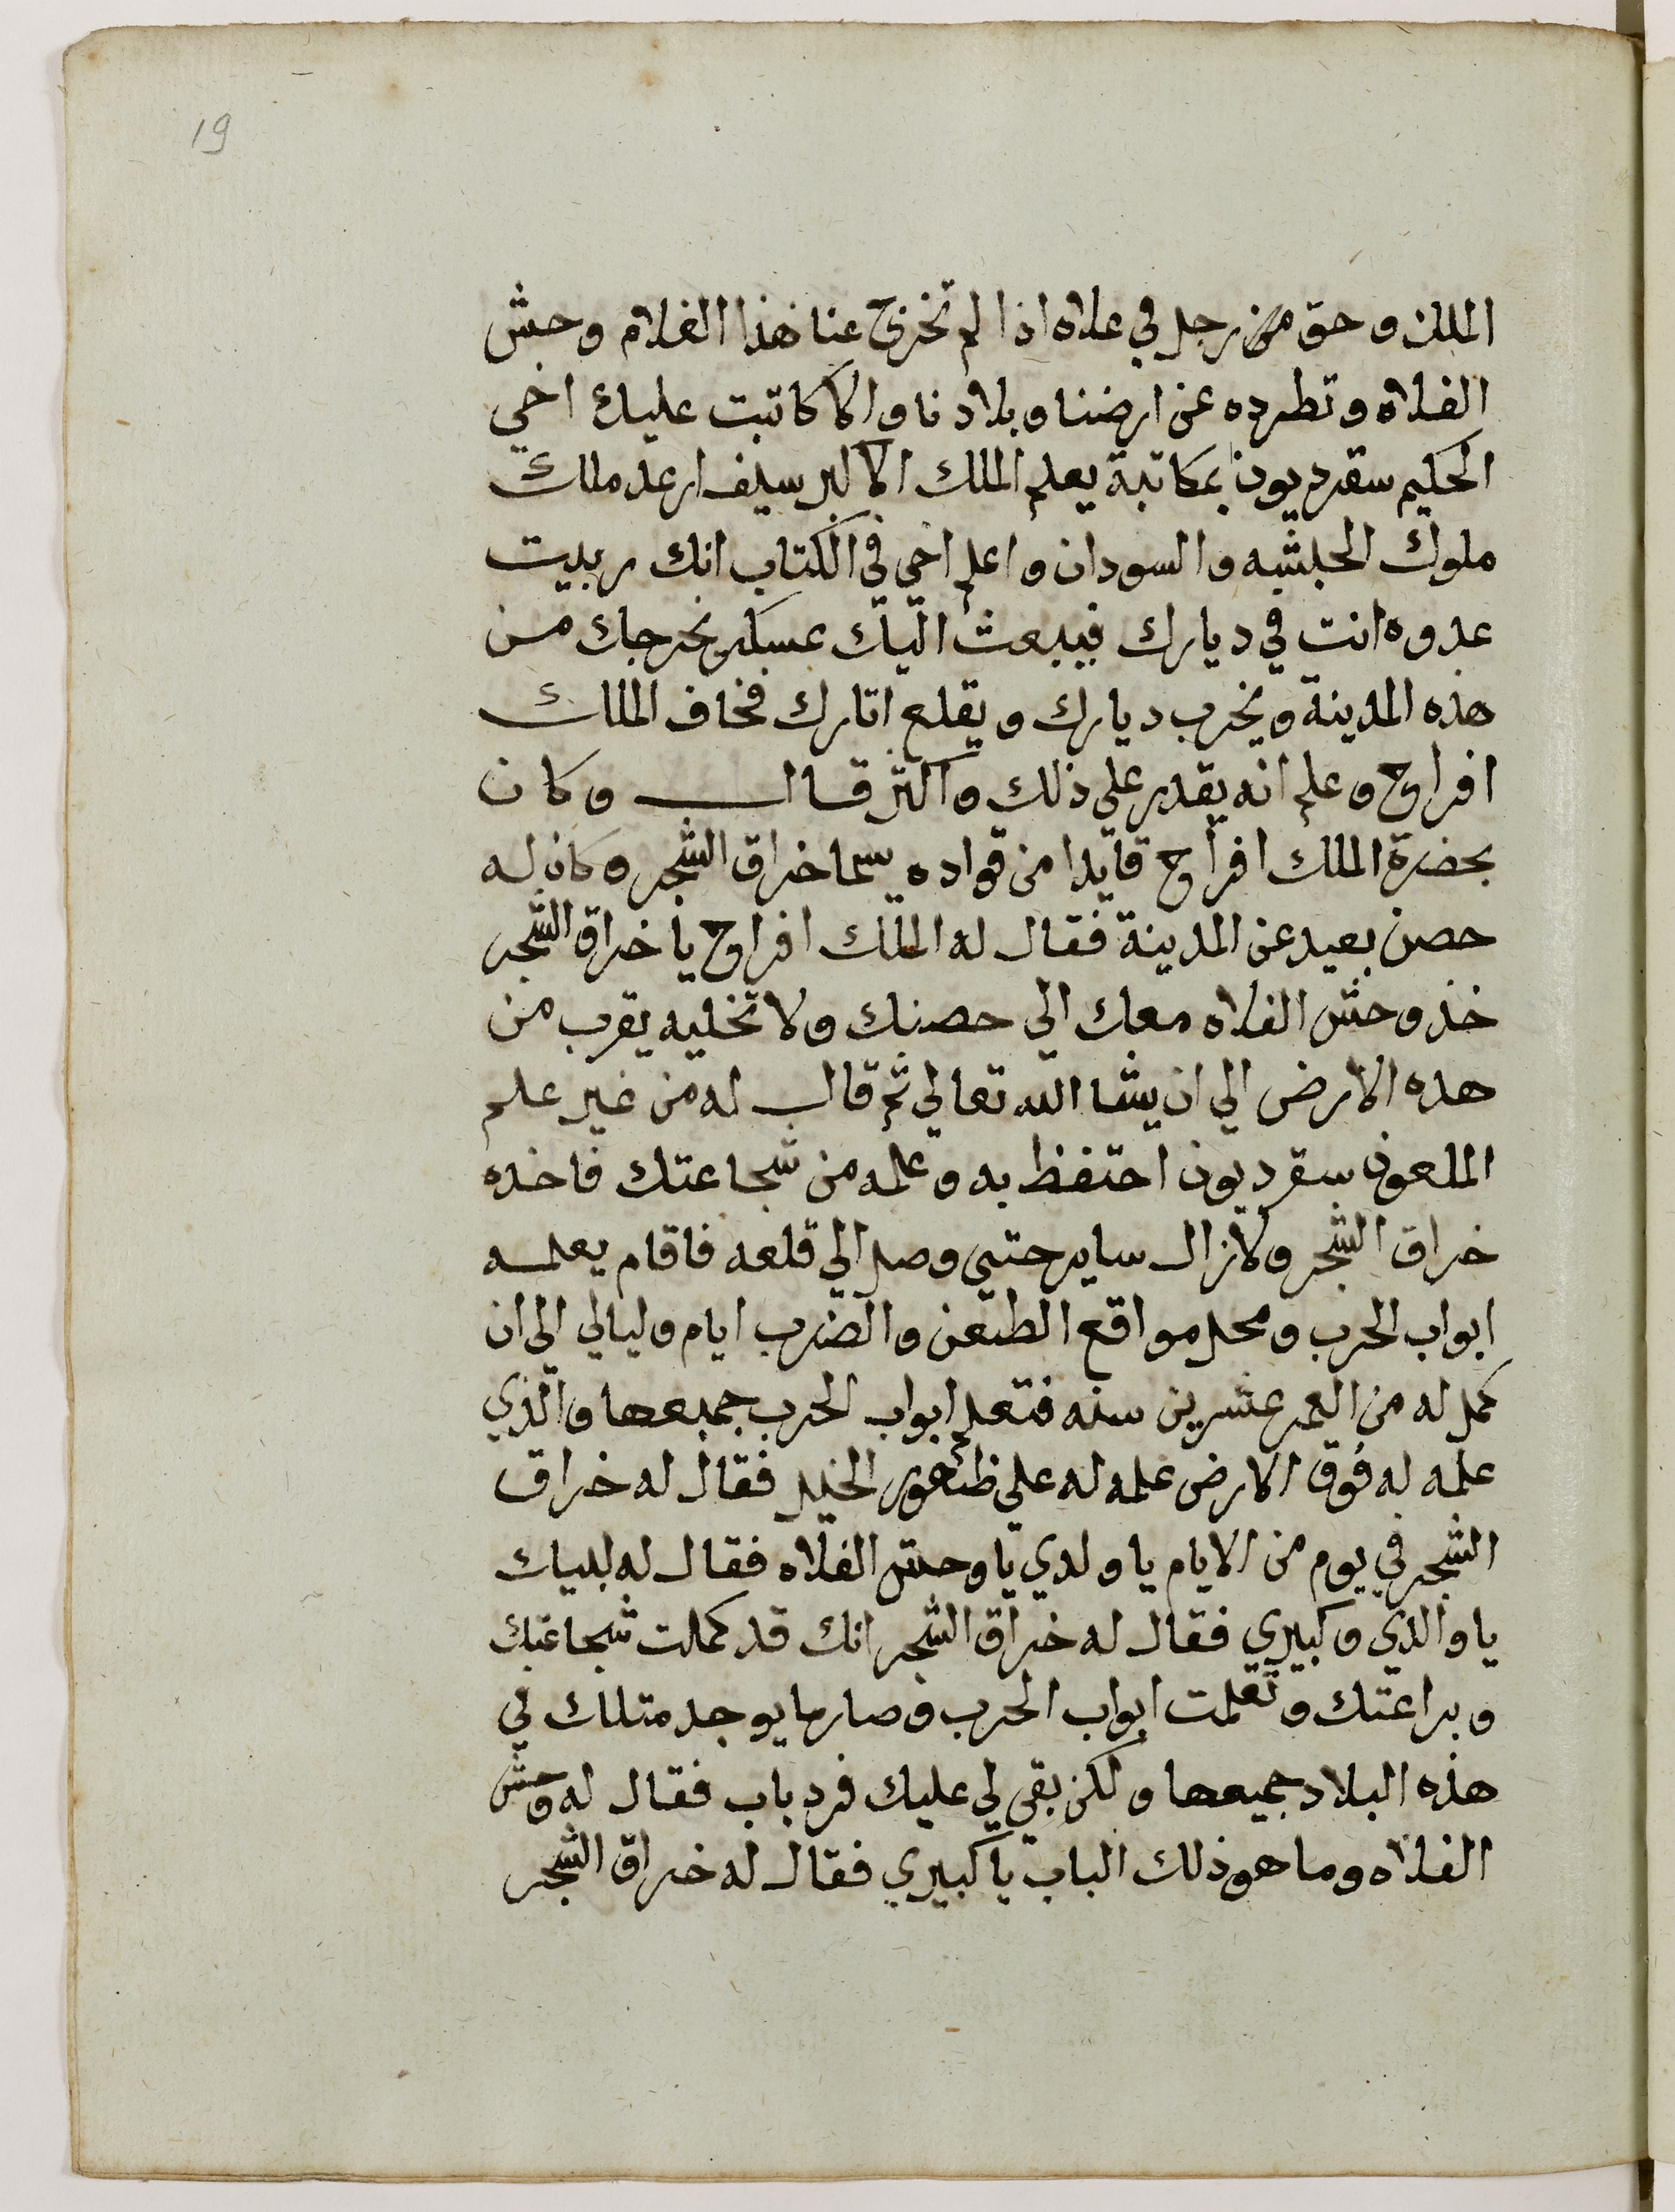 19
الملك وحق من زحل في علاه اذا لم تخرج عنا هذا الغلام وحش
الفلاه وتطرده عن ارضنا وبلادنا والا كاتبت عليك اخي
الحكيم سقرديون بمكاتبة يعلم الملك الاكبر سيف ارعد ملك
ملوك الحبشه والسودان واعلم اخي في الكتاب انك ربيت
عدوه انت في ديارك فيبعث اليك عسكر يخرجك من
هذه المدينة ويخرب ديارك ويقلع اتارك فخاف الملك
افراح وعلم انه يقدر على ذلك واكتر قال وكان
بحضرة الملك افراح قايدا من قواده يسما خراق الشجر وكان له
حصن بعيد عن المدينة فقال له الملك افراح يا خراق الشجر
خذ وحش الفلاه معك الى حصنك ولا تخليه يقرب من
هذه الارض الي ان يشا الله تعالي ثم قال له من غير علم
الملعون سقرديون احتفظ به وعلمه من شجاعتك فاخده
خراق الشجر ولازال ساير حتى وصل الي قلعه فاقام يعلمه
ابواب الحرب ومحل مواقع الطعن والضرب ايام وليالي الى ان
كمل له من العمر عشرين سنه فتعلم ابواب الحرب جميعها والذي
علمه له فوق الارض علمه له علي ظهور الخيل فقال له خراق
الشجر في يوم من الايام يا ولدي يا وحش الفلاه فقال له لبيك
يا والدي وكبيري فقال له خراق الشجر انك قد كملت شجاعتك
وبراعتك وتعلمت ابواب الحرب وصار ما يوجد متلك في
هذه البلاد جميعها ولكن بقي لي عليك فرد باب فقال له وحش
الفلاه وما هو ذلك الباب يا كبيري فقال له خراق الشجر